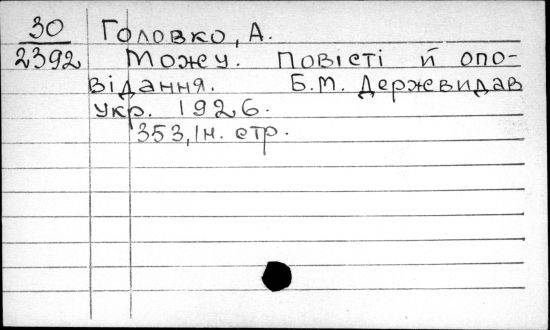 30 Головко, А.
2392 Можу. Повісті й опо-
відання. Б.М. Державидав
Укр. 1926.
353, 1н. стр.